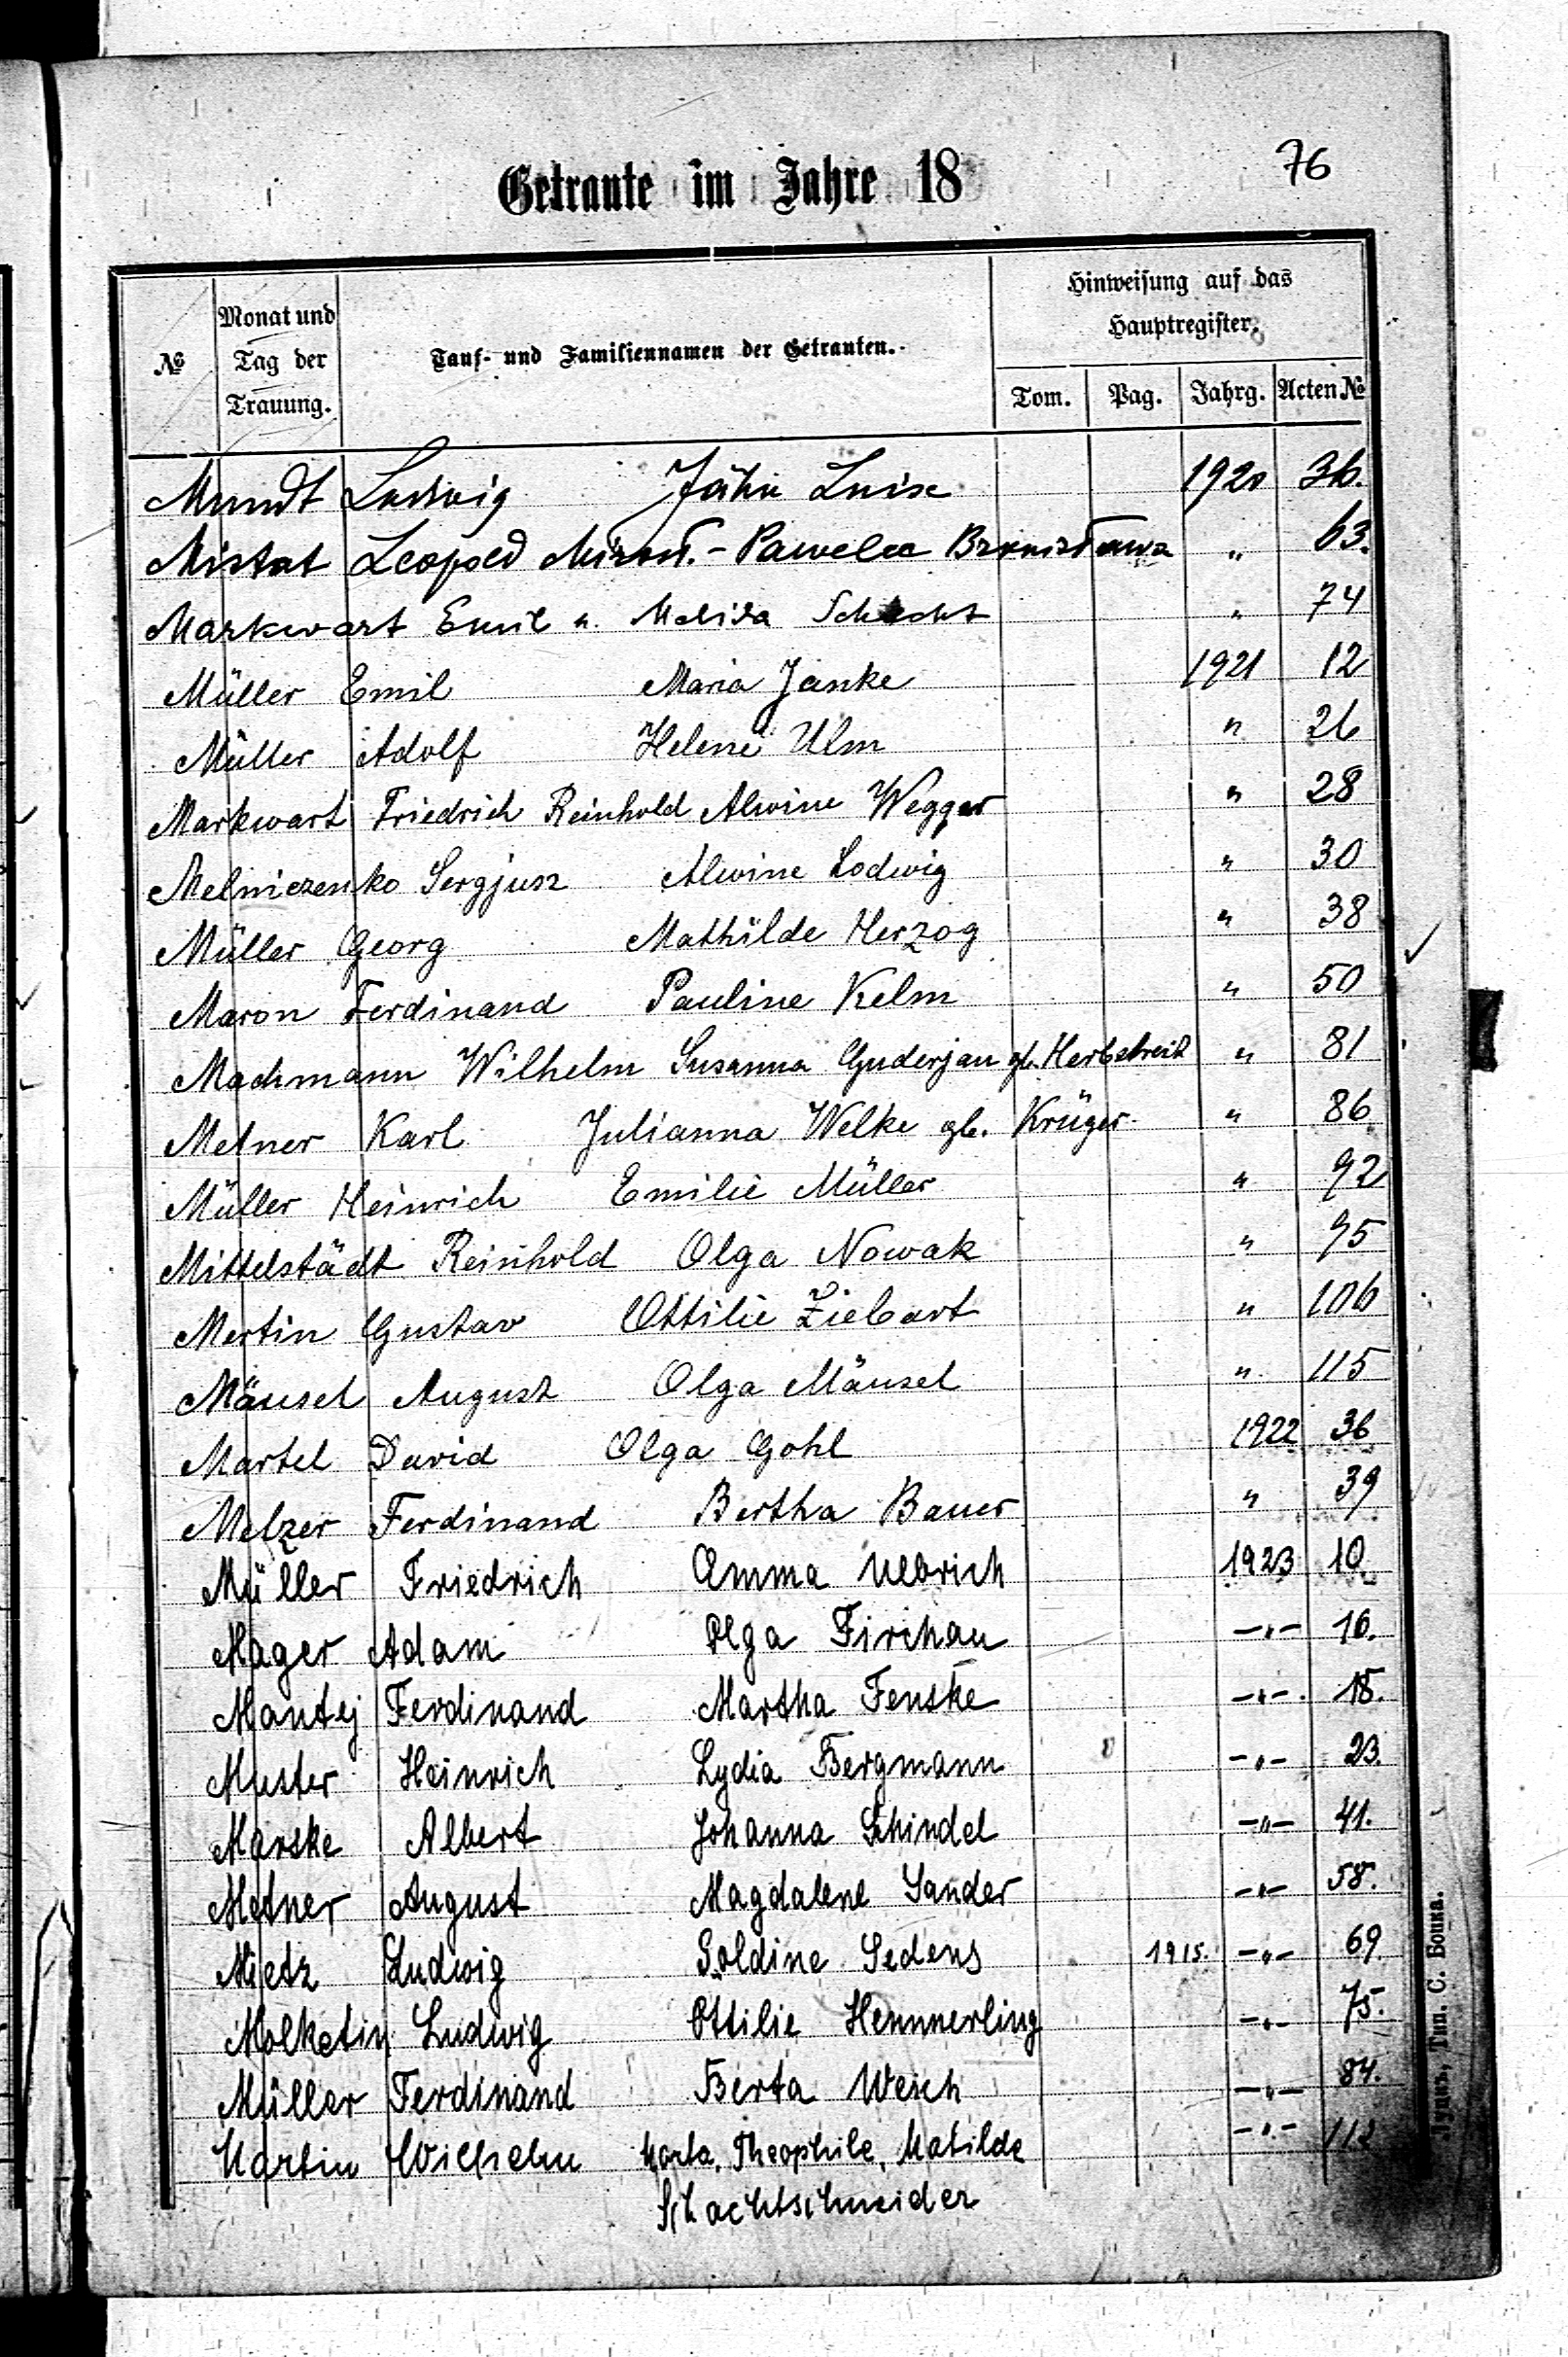 76
Getraute im Jahre 18
№ Monat und Tag der Trauung. Tauf- und Familiennamen der Getrauten. Hinweisung auf das Hauptregister.
Tom. Pag. Jahrg. Acten №
Mundt Ludwig Jähn Luise 1920 36.
Mistat Leopold Pawelec Bronisława " 63.
Markwart Emil u. Schacht " 74
Müller Emil Maria Janke 1921 12
Müller Adolf Helene Ulm " 26
Markwart Friedrich Reinhold Alwine Wegger " 28
Melniczenko Sergjusz Alwine Lodwig " 30
Müller Georg Mathilde Herzog " 38
Maron Ferdinand Pauline Kelm " 50
Machmann Wilhelm Susanna Guderjan gb. Herbstreit " 81
Metner Karl Julianna Welke gb. Krüger " 86
Müller Heinrich Emilie Müller " 92
Mittelstädt Reinhold Olga Nowak " 95
Mertin Gustav Ottilie Ziebart " 106
Mäusel August Olga Mäusel " 115
Martel David Olga Gohl 1922 36
Melzer Ferdinand Bertha Bauer " 39
Müller Friedrich Emma Ulbrich 1923 10
Mager Adam Olga Firchau -"- 16.
Mantej Ferdinand Martha Fenske -"- 18.
Muster Heinrich Lydia Bergmann -"- 23.
Marske Albert Johanna Schindel -"- 41.
Metner August Magdalene Sander -"- 58.
Mietz Ludwig Soldine Sedens 1915. -"- 69
Molketin Ludwig Ottilie Hemmerling -"- 75.
Müller Ferdinand Berta Weich -"- 84.
Martin Wilhelm Marta, Theophile, Matilde -"- 112
Schachtschneider
Луцкъ, Тип. С. Бонка.